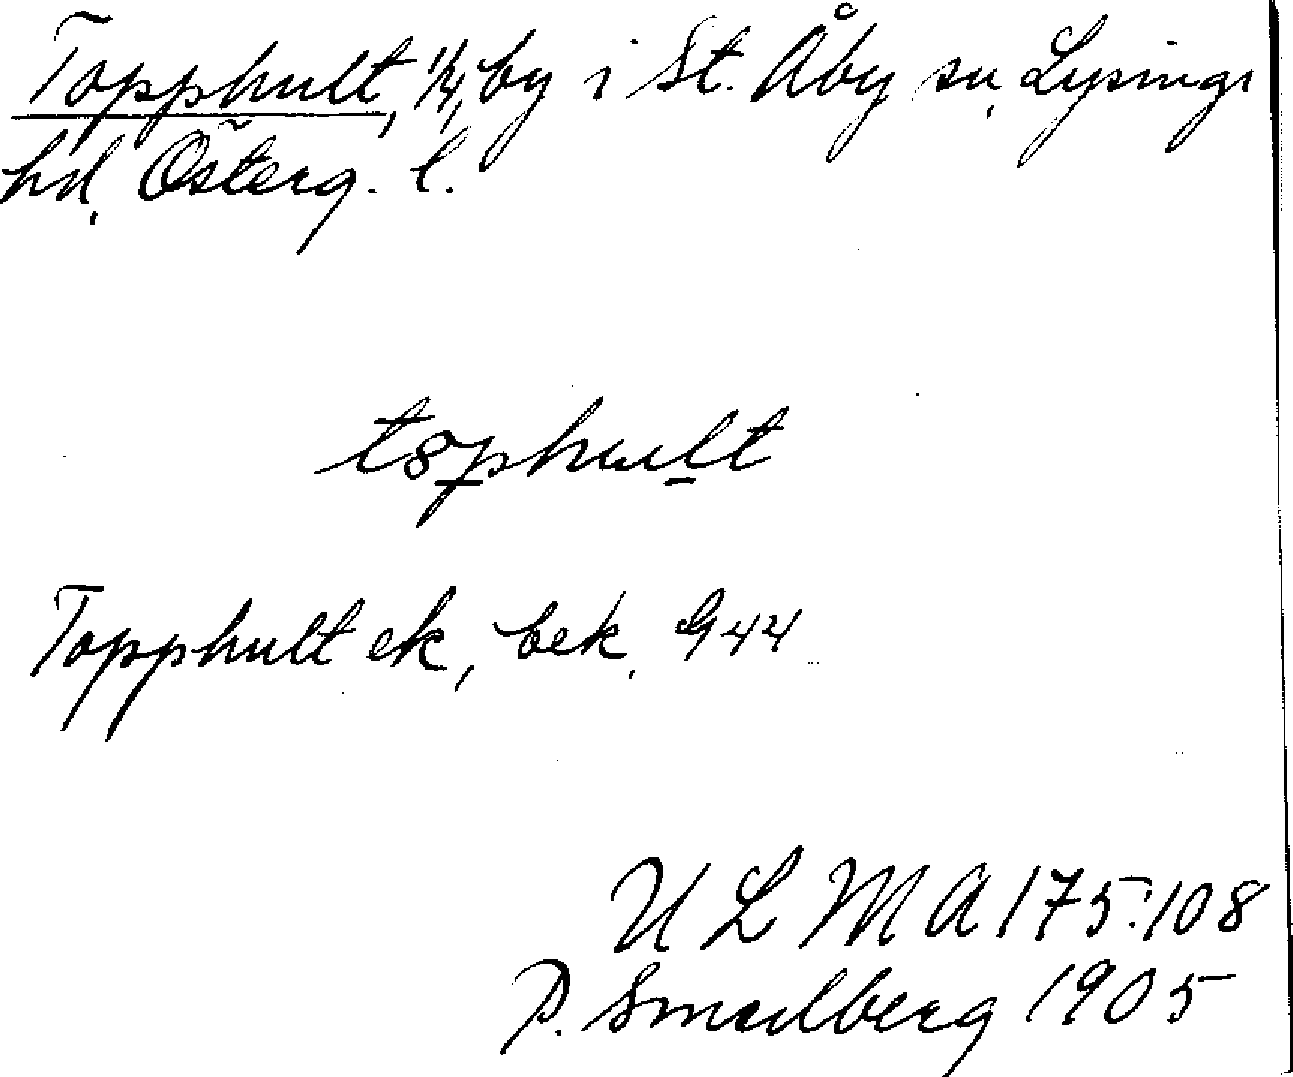 Topphult, 1/4, by i St. Åby sn, Lysings
hd, Österg. l.
tophult
Topphult ek, bek. G44
ULMA 175:108
P. Smedberg 1905